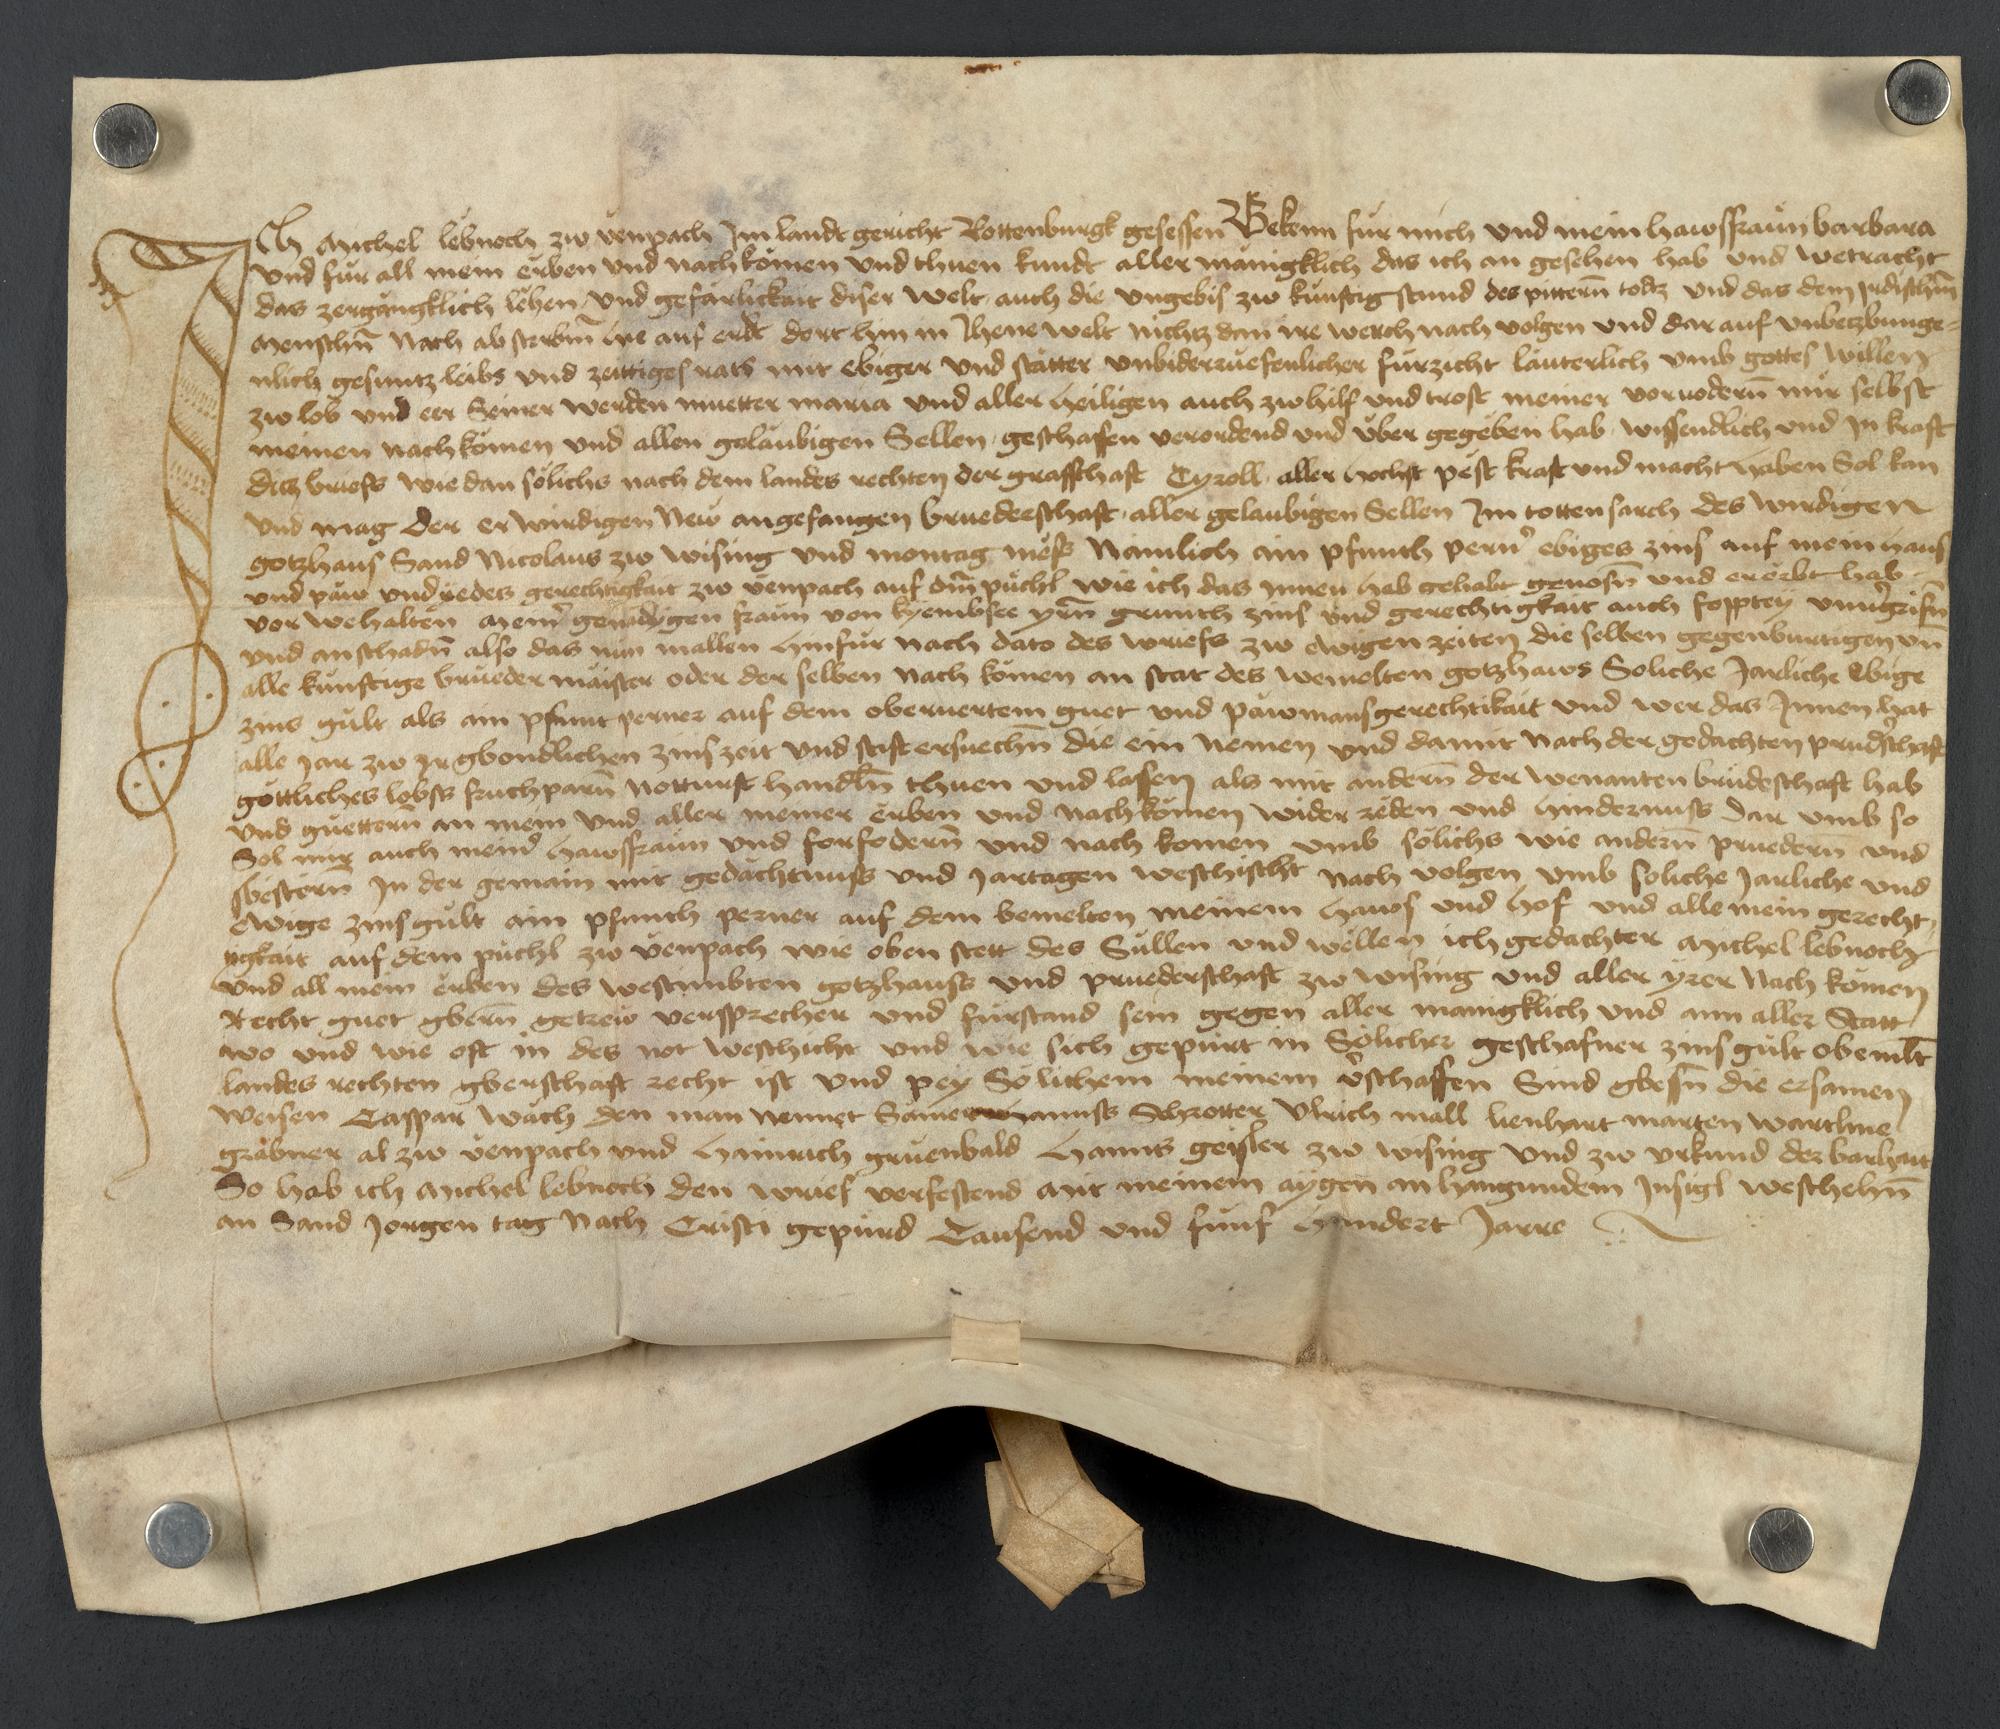 Ich Michel lebnoch zw venpach Im landt gericht Rottenburgk gesessen Bekenn für mich und mein hawsfraun barbara
und für all mein erben und nachkömen und thuen kundt aller mänigklich das ich an gesehen hab und wetracht
das zergängklich leben und gefärlickait diser welt auch die ungebis zw künftig stund des pittern̄ todz und das dem jrdischn̄
Menschn̄ Nach ab sterbm̄ hie auf erdt dort hin in Jhene welt nichtz dan ire werch nach volgen und dar auf unbetzbunge-
nlich gesuntz leibs und zeittiges rats mit ebiger und stätter unbiderruefenlicher fürzicht läuterlich umb gottes willen
zw lob und eer Seiner werden muetter maria und aller heiligen auch zw hilf und trost meiner vorvodern̄ mir selbst
meinen nachkömen und allen geläubigen Sellen geschaffen verordend und über gegeben hab wissendlich und In kraft
ditz briefs wie dan sölichs nach dem landes rechten der graffschaft Tyroll aller höchst pest kraft und macht haben Sol kan
und mag Der erwirdigen New angefangen bruederschaft aller gelaubigen Sellen Im totten sarch des wirdigen
gotzhaus Sand Nicolaus zw wising und montag mess Nämlich ain pfunth pern' ebiges zins auf mein haus
und päw und yedes gerechtigkait zw venpach auf dm̄ püchl wie ich das Innen hab gehabt genosn̄ und ererbt hab
vor wehalten Meinr genädigen fraun von kyembsee yrn̄ grunth zins und gerechtigkait auch fopptey unvergrifn̄
und an schadn̄ also das nün mallen hinfür nach dato des wriefs zw ewigen zeiten die selben gegenburtigen un̄
alle künftige brueder maister oder der selben nach kömen an stat des wemelten gotzhaws Soliche Jarliche Ebige
zins gült als ain pfunt perner auf dem oberuertem guet und päwmansgerechtikait und wer das Innen hat
alle Jar zw Ir gbondlichen zinszeit und stift ersuechn̄ die ein nemen und damit nach der gedachten pruderschaft
göttliches lobss fruchparn̄ notturft handln̄ thuen und lassen als mit andern̄ der wenanten brüdeschaft hab
und guettern an mein und aller meiner erben und nachkömen wider reden und hindernuss Dar umb so
Sol mir auch meinr hawsfraun und forfodern̄ und nach komen umb sölichs wie andern̄ pruedern̄ und
sbestern̄ In der gemain mit gedächtnuss und Jartagen weschischt nach volgen umb soliche Jarliche und
ewige zinsgült ain pfunth perner auf dem bemelten meinem haws und hof und alle mein gerecht
igkait auf dem püchl zw venpach wie oben stett des Süllen und wellen ich gedachter Michel lebnoch
und all mein erben des westimbten gotzhauss und pruederschaft zw wising und aller yrer Nach kömen
Recht guet gbern̄ getrew versprecher und fürstand sein gegen aller manigklich und ann aller Statt
wo und wie oft in des not weschicht und wie sich gepürt in Sölicher geschafner zinsgült obemlt̄
landes rechten gberschaft recht ist und pey Sölichem meinem vschaffen Sind gbesn̄ die ersamen
weisen Caspar wäch den man nennet hannss Schrotter Ulrich mall lienhart marten
gräbner al zw venpach und hainrich gruenbald hanns geisler zw wising und zw urkund der barhait
So hab ich Michel lebnoch den wrief verfestend Mit meinem aygen an hangundem Insigl weschehn̄
an Sand Jorgen tag Nach Cristi gepürd Tausend und fünf hundert Jarre